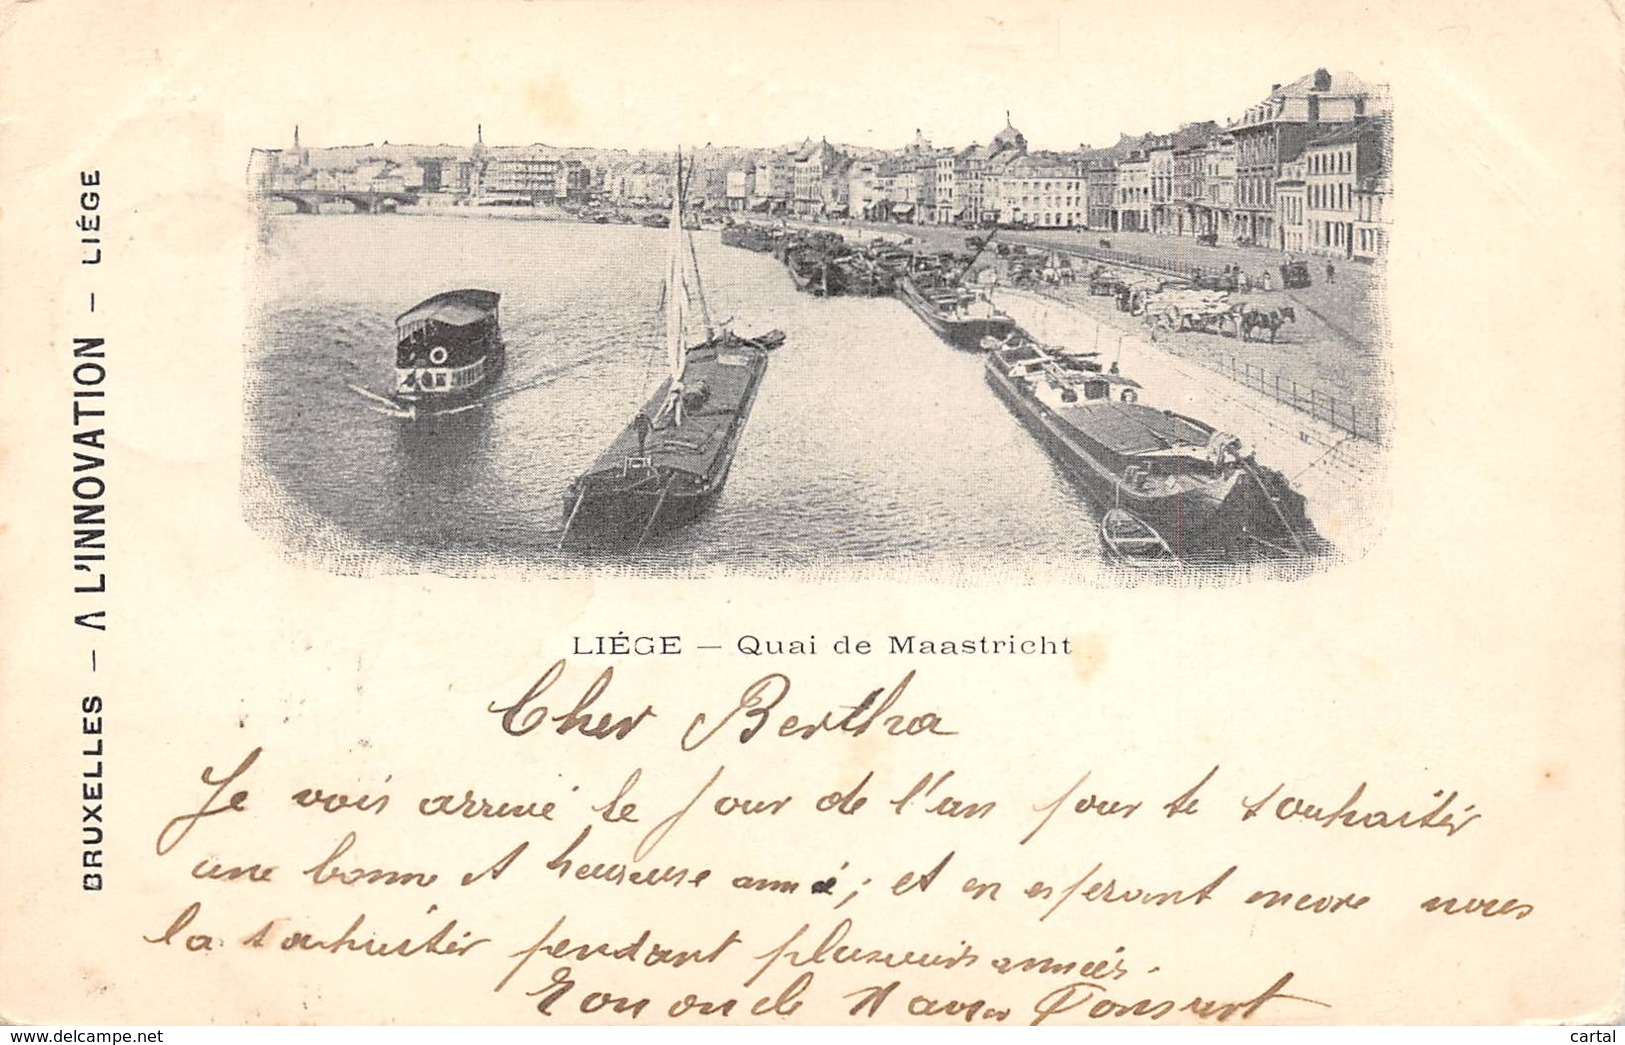 BRUXELLES — A L'INNOVATION — LIÉGE
LIÉGE — Quai de Maastricht
Cher Bertha
Je vois arrivé le jour de l'an pour te souhaiter
une bonne et heureuse année; et en esperant encore nous
la souhaiter pendant plusieurs années.
Ton oncle
cartal